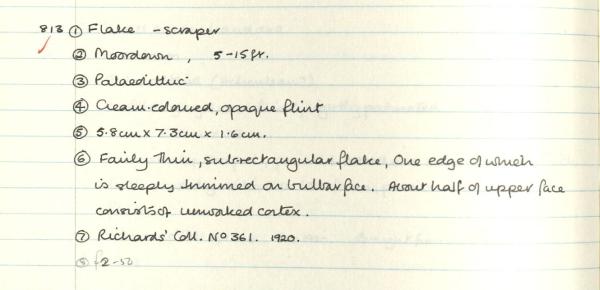 813 ① Flake - scraper
② Moordown, 5-15ft.
③ Palaeolithic
④ Cream-coloured, opaque flint
⑤ 5.8cm x 7.3cm x 1.6cm.
⑥ Fairly thin, sub-rectangular flake, One edge of which
is steeply trimmed on bulbar face. About half of upper face
consists of unworked cortex.
⑦ Richards' Coll. No 361. 1920.
⑧ £2-50